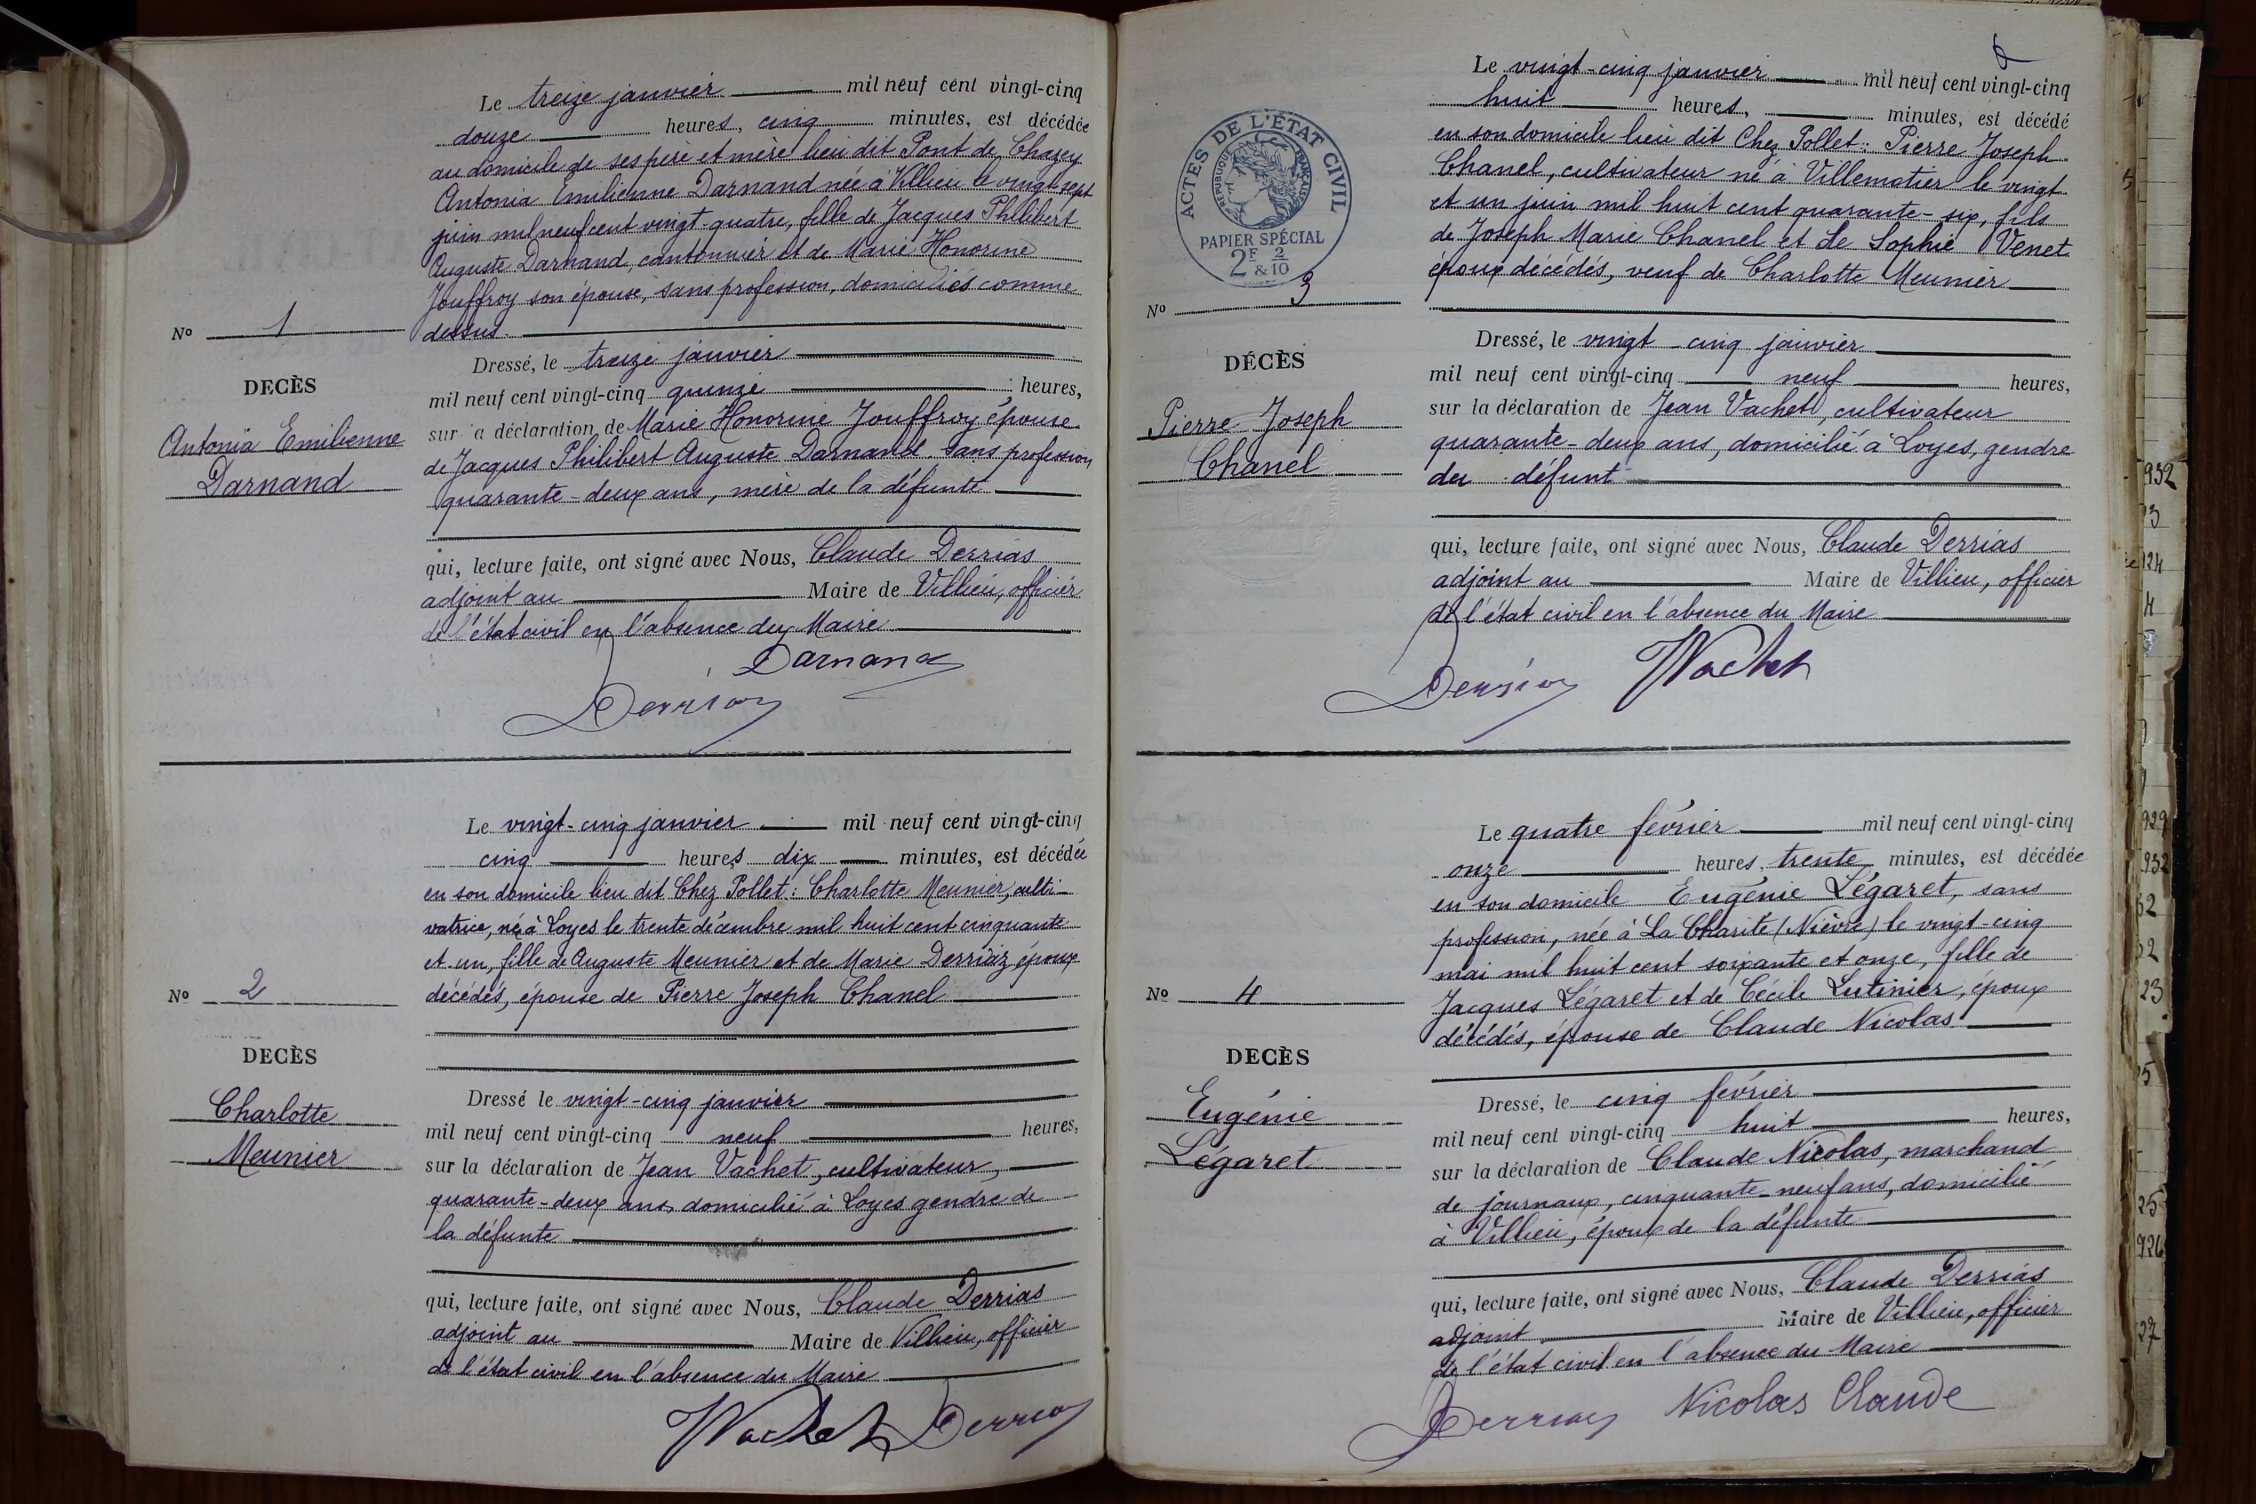 Le treize janvier mil neuf cent vingt-cinq
douze heures, cinq minutes, est décédée
au domicile de ses père et mère lieu dit Pont de Chazey
Antonia Emilienne Darnand née à Villieu le vingt-sept
juin mil neuf cent vingt-quatre, fille de Jacques Philibert
Auguste Darnand, cantonnier et de Marie Honorine
Jouffroy son épouse, sans profession, domiciliés comme
dessus.
No 1
DECÈS
Antonia Emilienne
Darnand
Dressé, le treize janvier
mil neuf cent vingt-cinq quinze heures,
sur la déclaration de Marie Honorine Jouffroy épouse
de Jacques Philibert Auguste Darnand sans profession
quarante-deux ans, mère de la défunte
qui, lecture faite, ont signé avec Nous, Claude Derrias
adjoint au Maire de Villieu, officier
de l'état civil en l'absence du Maire
Darnand
Derrias
Le vingt-cinq janvier mil neuf cent vingt-cinq
cinq heures dix minutes, est décédée
en son domicile lieu dit Chez Pollet : Charlotte Meunier, culti-
vatrice, née à Loyes le trente décembre mil huit cent cinquante
et un, fille de Auguste Meunier et de Marie Derriaz époux
décédés, épouse de Pierre Joseph Chanel
No 2
DECÈS
Charlotte
Meunier
Dressé le vingt-cinq janvier
mil neuf cent vingt-cinq neuf heures,
sur la déclaration de Jean Vachet, cultivateur,
quarante-deux ans, domicilié à Loyes gendre de
la défunte
qui, lecture faite, ont signé avec Nous, Claude Derrias
adjoint au Maire de Villieu, officier
de l'état civil en l'absence du Maire
Vachet Derrias
ACTES DE L'ÉTAT CIVIL
RÉPUBLIQUE FRANÇAISE
PAPIER SPÉCIAL
2F & 2/10
Le vingt-cinq janvier mil neuf cent vingt-cinq
huit heures, minutes, est décédé
en son domicile lieu dit Chez Pollet : Pierre Joseph
Chanel, cultivateur né à Villemotier le vingt
et un juin mil huit cent quarante-six, fils
de Joseph Marie Chanel et de Sophie Venet
époux décédés, veuf de Charlotte Meunier
No 3
DÉCÈS
Pierre Joseph
Chanel
Dressé, le vingt-cinq janvier
mil neuf cent vingt-cinq neuf heures,
sur la déclaration de Jean Vachet, cultivateur
quarante-deux ans, domicilié à Loyes, gendre
du défunt
qui, lecture faite, ont signé avec Nous, Claude Derrias
adjoint au Maire de Villieu, officier
de l'état civil en l'absence du Maire
Derrias Vachet
Le quatre février mil neuf cent vingt-cinq
onze heures, trente minutes, est décédée
en son domicile Eugénie Légaret, sans
profession, née à La Charité (Nièvre) le vingt-cinq
mai mil huit cent soixante et onze, fille de
Jacques Légaret et de Cécile Lutinier, époux
décédés, épouse de Claude Nicolas
No 4
DECÈS
Eugénie
Légaret
Dressé, le cinq février
mil neuf cent vingt-cinq huit heures,
sur la déclaration de Claude Nicolas, marchand
de journaux, cinquante-neuf ans, domicilié
à Villieu, époux de la défunte
qui, lecture faite, ont signé avec Nous, Claude Derrias
adjoint Maire de Villieu, officier
de l'état civil en l'absence du Maire
Derrias Nicolas Claude